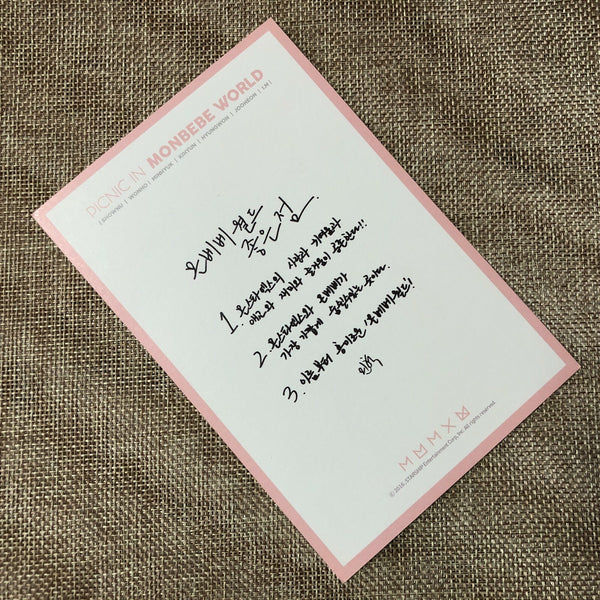 PICNIC IN MONBEBE WORLD
| SHOWNU | WONHO | MINHYUK | KIHYUN | HYUNGWON | JOOHEON | I.M |
몬베베 월드
좋은 점.
1. 몬스타엑스의 사랑과 귀여움과
애교와 재미와 즐거움이 공존한다!!
2. 몬스타엑스와 몬베베가
가장 가깝게 소통할 수 있는 곳이다.
3. 이름부터 흥미로운 '몬베베월드'!
민혁
© 2016. STARSHIP Entertainment Corp, Inc. All rights reserved.